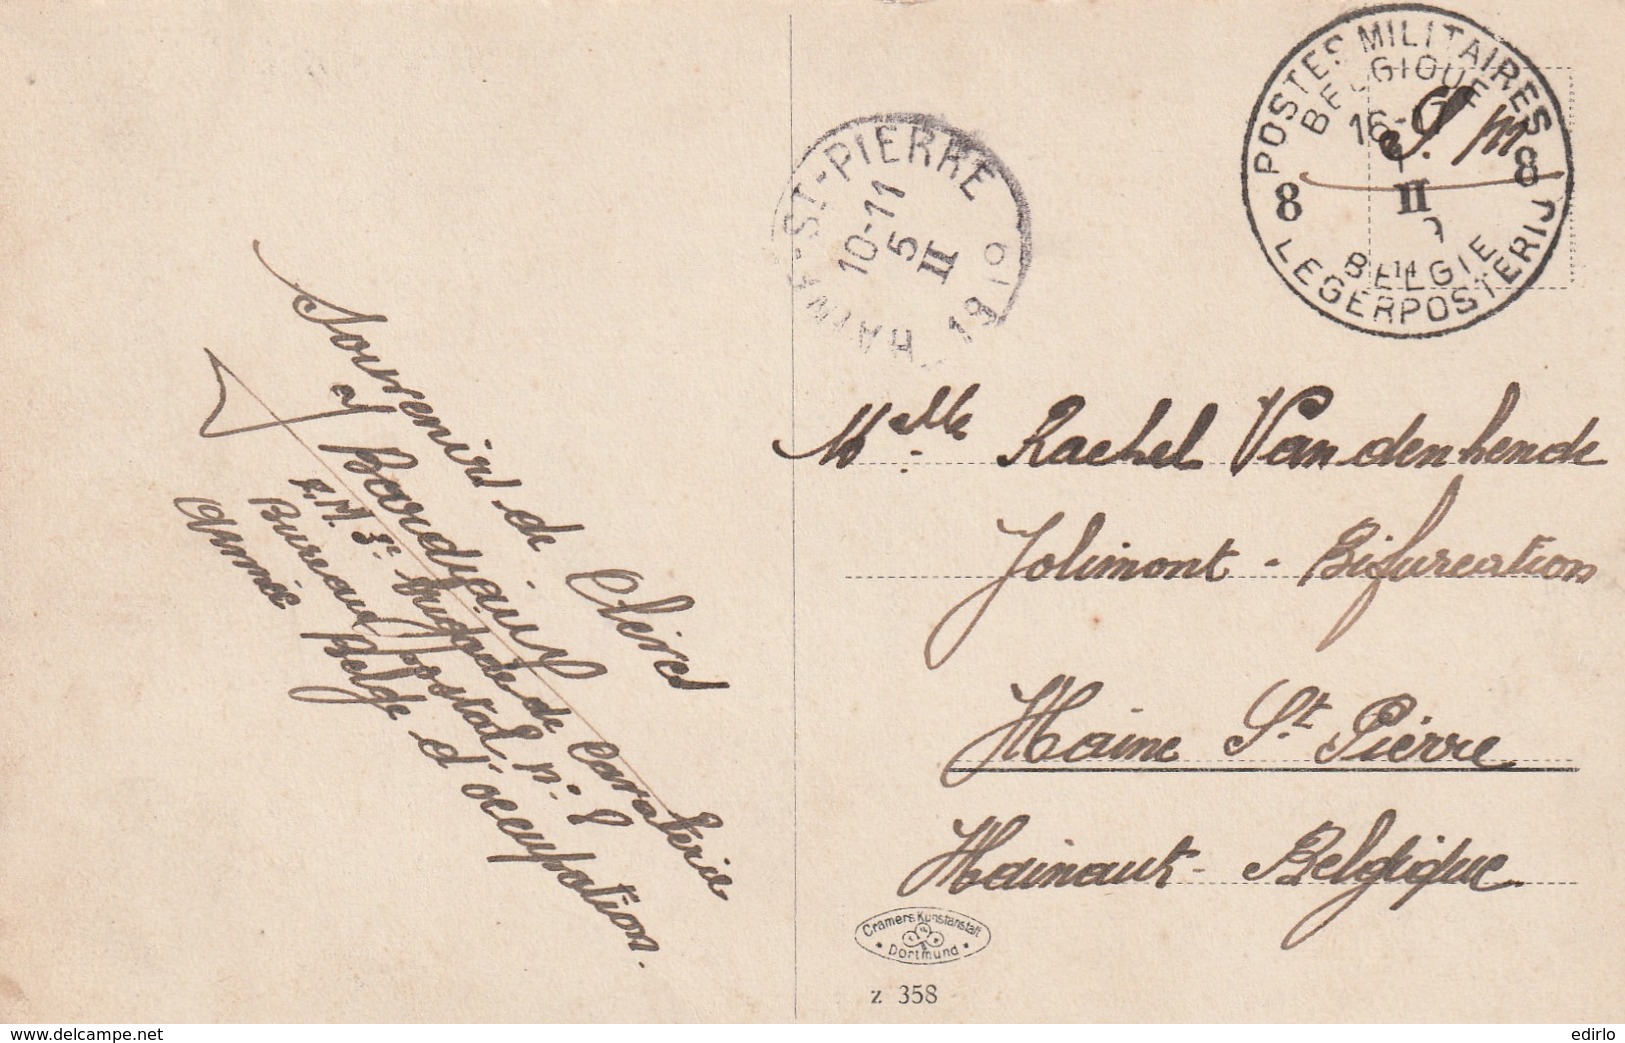 POSTES MILITAIRES
BELGIQUE
16-
S. M.
8 II 8
BELGIE
LEGERPOSTERIJ
HAINE-ST-PIERRE
10-11
5
II
1919
Souvenirs de Clérel
à Bordjaux
E.M. 3e Brigade de Cavalerie
Bureau postal n. 8
Armée Belge d'occupation.
Melle Rachel Vandenhende
Jolimont - Bifurcation
Haine St Pierre
Hainaut - Belgique
Cramers Kunstanstalt
Dortmund
z 358
www.delcampe.net
edirlo